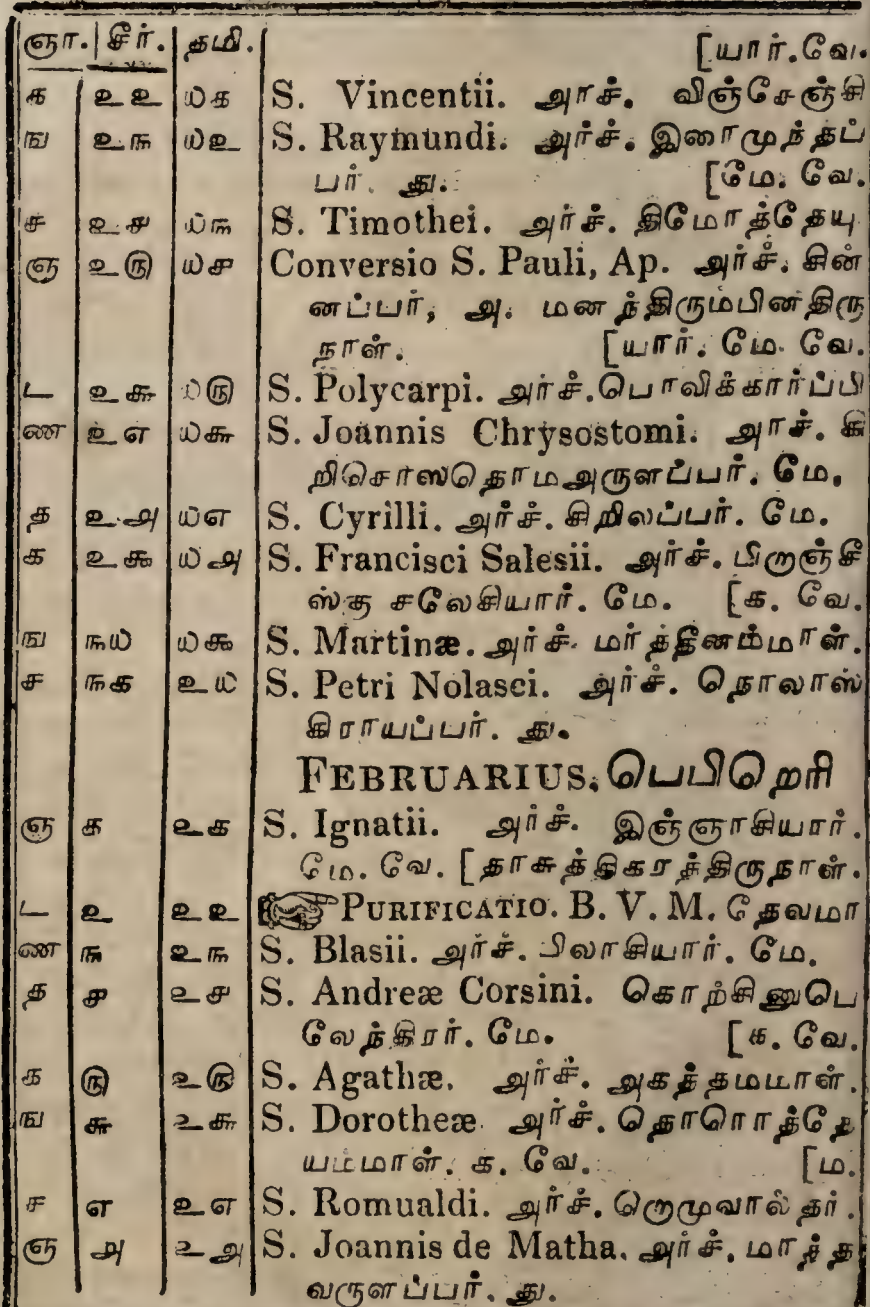 ஞா. | சீர். | தமி. [யார். வே.
க உஉ ௰க S. Vincentii. அர்ச். விஞ்சேஞ்சி
ங உ௩ ௰உ S. Raymundi. அர்ச். இரைமுந்தப்
பர். து. [மே. வே.
ச உ௪ ௰௩ S. Timothei. அர்ச். திமோத்தேயு
ஞ உ௫ ௰௪ Conversio S. Pauli, Ap. அர்ச். சின்
னப்பர், அ. மனந்திரும்பினதிரு
நாள். [யார். மே. வே.
ட உ௬ ௰௫ S. Polycarpi. அர்ச். பொலிக்கார்ப்பி
ண உ௭ ௰௬ S. Joannis Chrysostomi. அர்ச். கி
றிசொஸதொமஅருளப்பர். மே.
த உ௮ ௰௭ S. Cyrilli. அர்ச். சிறிலப்பர். மே.
க உ௯ ௰௮ S. Francisci Salesii. அர்ச். பிறஞ்சீ
ஸ்கு சலேசியார். மே. [க. வே.
ங ௩௰ ௰௯ S. Martinæ. அர்ச். மர்த்தீனம்மாள்.
ச ௩௧ உ௰ S. Petri Nolasci. அர்ச். நொலாஸ்
கிராயப்பர். து.
FEBRUARIUS, பெபிறெரி
ஞ ௧ உ௧ S. Ignatii. அர்ச். இஞ்ஞாசியார்.
மே. வே. [தாசுத்திகரத்திருநாள்.
ட உ உஉ ☞ PURIFICATIO. B. V. M. தேவமா
ண ௩ உ௩ S. Blasii. அர்ச். பிலாசியார். மே.
த ௪ உ௪ S. Andreæ Corsini. கொற்சினுபெ
லேந்திரர். மே. [க. வே.
க ௫ உ௫ S. Agathæ. அர்ச். அகத்தம்மாள்.
ங ௬ உ௬ S. Dorotheæ. அர்ச். தொரொத்தே
யம்மாள். க. வே. [ம.
ச ௭ உ௭ S. Romualdi. அர்ச். றொமுவால்தர்.
ஞ ௮ உ௮ S. Joannis de Matha. அர்ச். மாத்த
வருளப்பர். து.